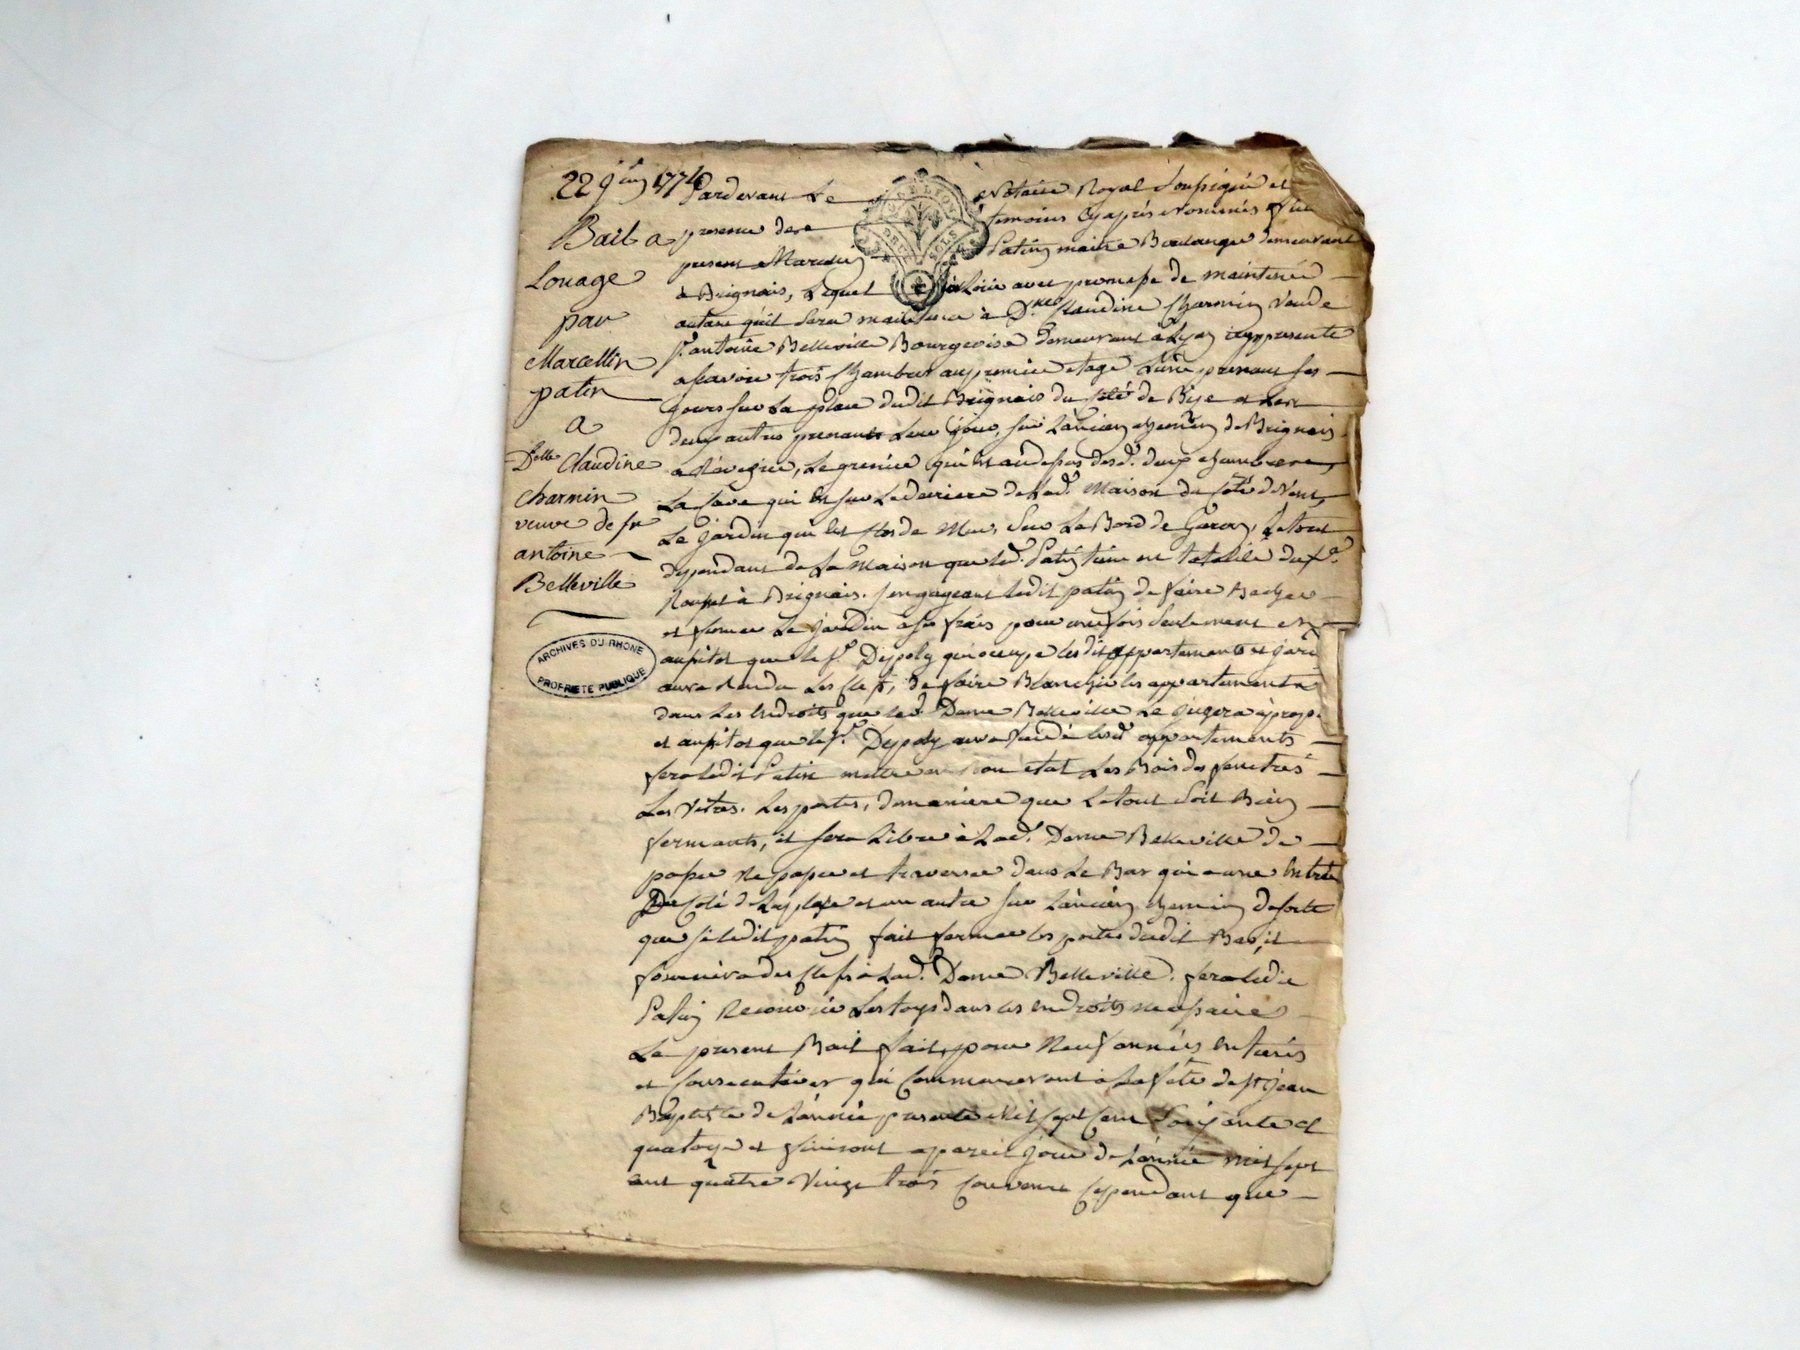 22 juin 1774
Bail a
Louage
par
Marcellin
patin
a
Delle Claudine
Charmin
veuve de sr
antoine
Belleville
ARCHIVES DU RHONE
PROPRIETE PUBLIQUE
Pardevant Le Notaire Royal soussigné et
presence de temoins Cyaprès Nommés
present Marcelin Patin maitre Boulanger demeurant
a Brignais, Lequel à Loüé avec promesse de maintenir
autant quil sera a Claudine Charmin veuve
Sr antoine Belleville Bourgeoise demeurant a Lyon icy presente
ascavoir trois Chambres au premier etage L'une prenant ses
jours sur La place dudit Brignais du coté de Bise et Les
deux autres prenants Leur jour, sur L'ancien chemin de Brignais
a Le grenier qui est audessus desd. deux chambres
La Cave qui est sur Le derriere de Lad. Maison du coté de Vent
Le jardin qui est clos de Mur, sur Le Bord de Garon, Le tout
dependant de La Maison que led. Patin tient en du Sr
a Brignais. s'engageant ledit patin de faire
et fermer Le jardin a ses frais pour une fois seulement et
aussitot que le Sr Depoly qui occupe lesdits appartements et jardin
aura rendu Les clefs, de faire Blanchir les appartements
dans Les endroits que lad. Dame Belleville Le jugera apropos
et aussitot que le Sr Depoly aura vuidé lesd. appartements
fera ledit Patin mettre en bon etat Les Bois des fenetres
Les Vitres. Les portes, de maniere que Le tout soit Bien
fermants, et sera Libre à Lad. Dame Belleville de
passer repasser et traverser dans Le Bas qui a une entrée
Du Coté de La place et un autre sur L'ancien chemin de sorte
que si ledit patin fait fermer les portes dudit Bas, il
fournira des clefs à Lad. Dame Belleville. fera ledit
Patin Les toys dans les endroits necessaire
Le present Bail fait, pour Neuf années entieres
et Consecutives qui Commenceront a La fete de St jean
Baptiste de L'année presente Mil sept cent Soixante et
quatorze et finiront a pareil jour de L'année mil sept
cent quatre vingt trois Convenu Cependant que